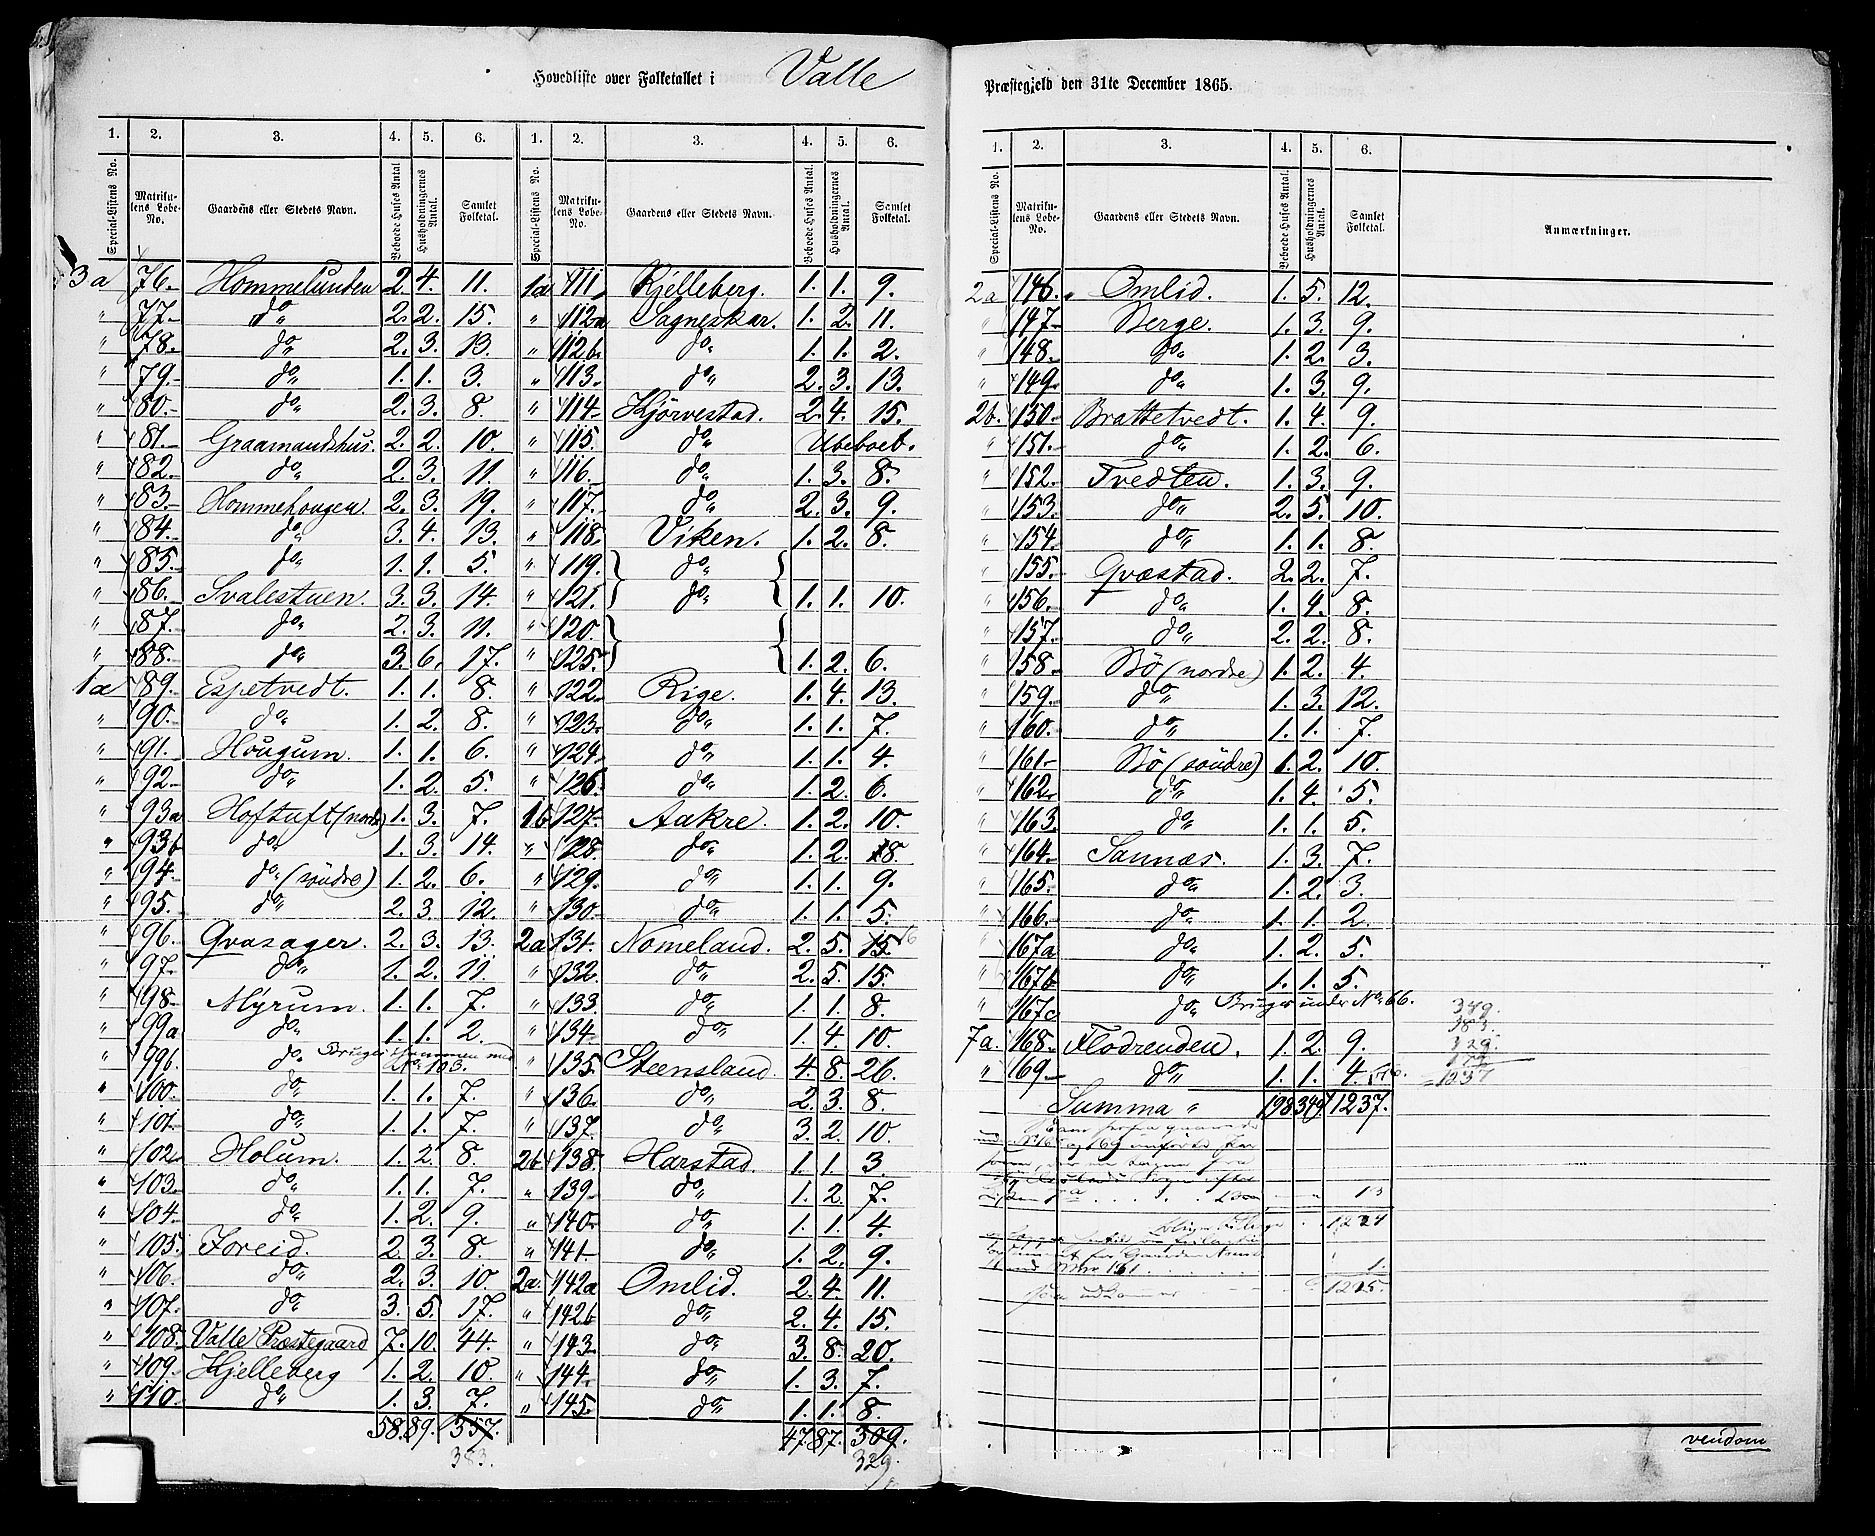 Hovedliste over Folketallet i Valle
1. 2. 3. 4. 5. 6. 1. 2. 3. 4. 5. 6.
Special-Listens No. Matrikulens Løbe-No. Gaardens eller Stedets Navn. Beboede Huses Antal Husholdningernes Antal. Samlet Folketal. Special-Listens No. Matrikulens Løbe-No. Gaardens eller Stedets Navn. Beboede Huses Antal. Husholdningernes Antal. Samlet Folketal.
3a 76. Hommelunden 2. 4. 11. 1a 111. Kjelleberg. 1. 1. 9.
" 77. do 2. 2. 15. " 112a Sagneskar. 1. 2. 11.
" 78. do 2. 3. 13. " 112b. do 1. 1. 2.
" 79. do 1. 1. 3. " 113. do 2. 3. 13.
" 80. do 2. 3. 8. " 114. Kjörvestad. 2. 4. 15.
" 81. Graamandshus. 2. 2. 10. " 115. do Ubeboet.
" 82. do 2. 3. 11. " 116. do 1. 3. 8.
" 83. Hommehougen 2. 3. 19. " 117. do 2. 3. 9.
" 84. do 3. 4. 13. " 118. Viken. 1. 2. 8.
" 85. do 1. 1. 5. " 119. do
" 86. Svalestuen. 3. 3. 14. " 121. do 1. 1. 10.
" 87. do 2. 3. 11. " 120.
" 88. do 3. 6. 17. " 125. 1. 2. 6.
1a 89. Espetvedt. 1. 1. 8. " 122. Rige. 1. 4. 13.
" 90. do 1. 2. 8. " 123. do 1. 1. 7.
" 91. Hougum. 1. 1. 6. " 124. do 1. 1. 4.
" 92. do 1. 2. 5. " 126. do 1. 2. 6.
" 93a Hoftuft (nordre) 1. 3. 7. 1b 127. Aakre. 1. 2. 10.
" 93b do 1. 3. 14. " 128. do 1. 2. 8.
" 94. do (söndre) 1. 2. 6. " 129. do 1. 1. 9.
" 95. do 2. 3. 12. " 130. do 1. 1. 5.
" 96. Qvasager. 2. 3. 13. 2a 131. Nomeland. 2. 5. 15. 16
" 97. do 1. 2. 11. " 132. do 2. 5. 15.
" 98. Myrum. 1. 1. 7. " 133. do 1. 1. 8.
" 99a do 1. 1. 2. " 134. do 1. 4. 10.
" 99b. do Bruges sammen med No 103. " 135. Steensland. 4. 8. 26.
" 100. do 1. 1. 7. " 136. do 2. 3. 8.
" 101. do 1. 1. 7. " 137. do 3. 2. 10.
" 102. Holum. 1. 2. 8. 2b 138. Harstad. 1. 1. 3.
" 103. do 1. 1. 7. " 139. do 1. 2. 7.
" 104. do 1. 2. 9. " 140. do 1. 1. 4.
" 105. Foreid. 2. 3. 8. " 141. do 1. 2. 9.
" 106. do 2. 3. 10. 2a 142a Omlid. 2. 4. 11.
" 107. do 3. 5. 17. " 142b do 2. 4. 15.
" 108. Valle Præstegaard 7. 10. 44. " 143. do 3. 8. 20.
" 109. Kjelleberg 1. 2. 10. " 144. do 1. 3. 7.
" 110. do 1. 3. 7. " 145. do 1. 1. 8.
58. 89. 357. 47. 87. 309.
383. 329.
Præstegjeld den 31te December 1865.
1. 2. 3. 4. 5. 6.
Special-Listens No. Matrikulens Løbe-No. Gaardens eller Stedets Navn. Beboede Huses Antal. Husholdningernes Antal. Samlet Folketal. Anmærkninger.
2a 146. Omlid. 1. 5. 12.
" 147. Berge. 1. 3. 9.
" 148. do 1. 2. 3.
" 149. do 1. 3. 9.
2b. 150. Brattetvedt. 1. 4. 9.
" 151. do 1. 2. 6.
" 152. Tvedten. 1. 3. 9.
" 153. do 2. 5. 10.
" 154. do 1. 1. 8.
" 155. Qvæstad. 2. 2. 7.
" 156. do 1. 4. 8.
" 157. do 2. 2. 8.
" 158. Bö (nordre) 1. 2. 4.
" 159. do 1. 3. 12.
" 160. do 1. 1. 7.
" 161. Bö (söndre) 1. 2. 10.
" 162. do 1. 4. 5.
" 163. do 1. 1. 5.
" 164. Sannæs. 1. 3. 7.
" 165. do 1. 2. 3.
" 166. do 1. 1. 2.
" 167a do 1. 2. 5.
" 167b do 1. 1. 5.
" 167c do Bruges under No 66. 349.
383.
7a. 168. Flodrenden. 1. 2. 9. 329.
" 169. do 1. 1. 4. 176. 1237
Summa " 198 349 1237.
13
1224
1.
1225.
vendom